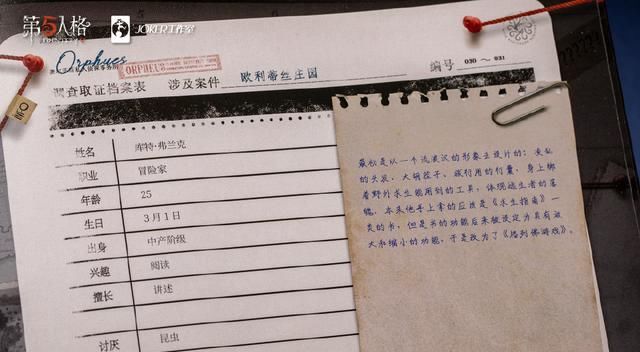 第5人格
JOKER工作室
Orpheus
ORPHEUS
调查取证档案表
涉及案件
欧利蒂丝庄园
编号
030 ～ 031
姓名
库特·弗兰克
职业
冒险家
年龄
25
生日
3月1日
出身
中产阶级
兴趣
阅读
擅长
讲述
讨厌
昆虫
最初是以一个流浪汉的形象去设计的：凌乱
的头发，大胡茬子，旅行用的行囊，身上绑
着野外求生能用到的工具，体现逃生者的落
魄，本来他手上拿的应该是《求生指南》一
类的书，但是书的功能后来被设定为具有放
大和缩小的功能，于是改为了《格列佛游戏》。